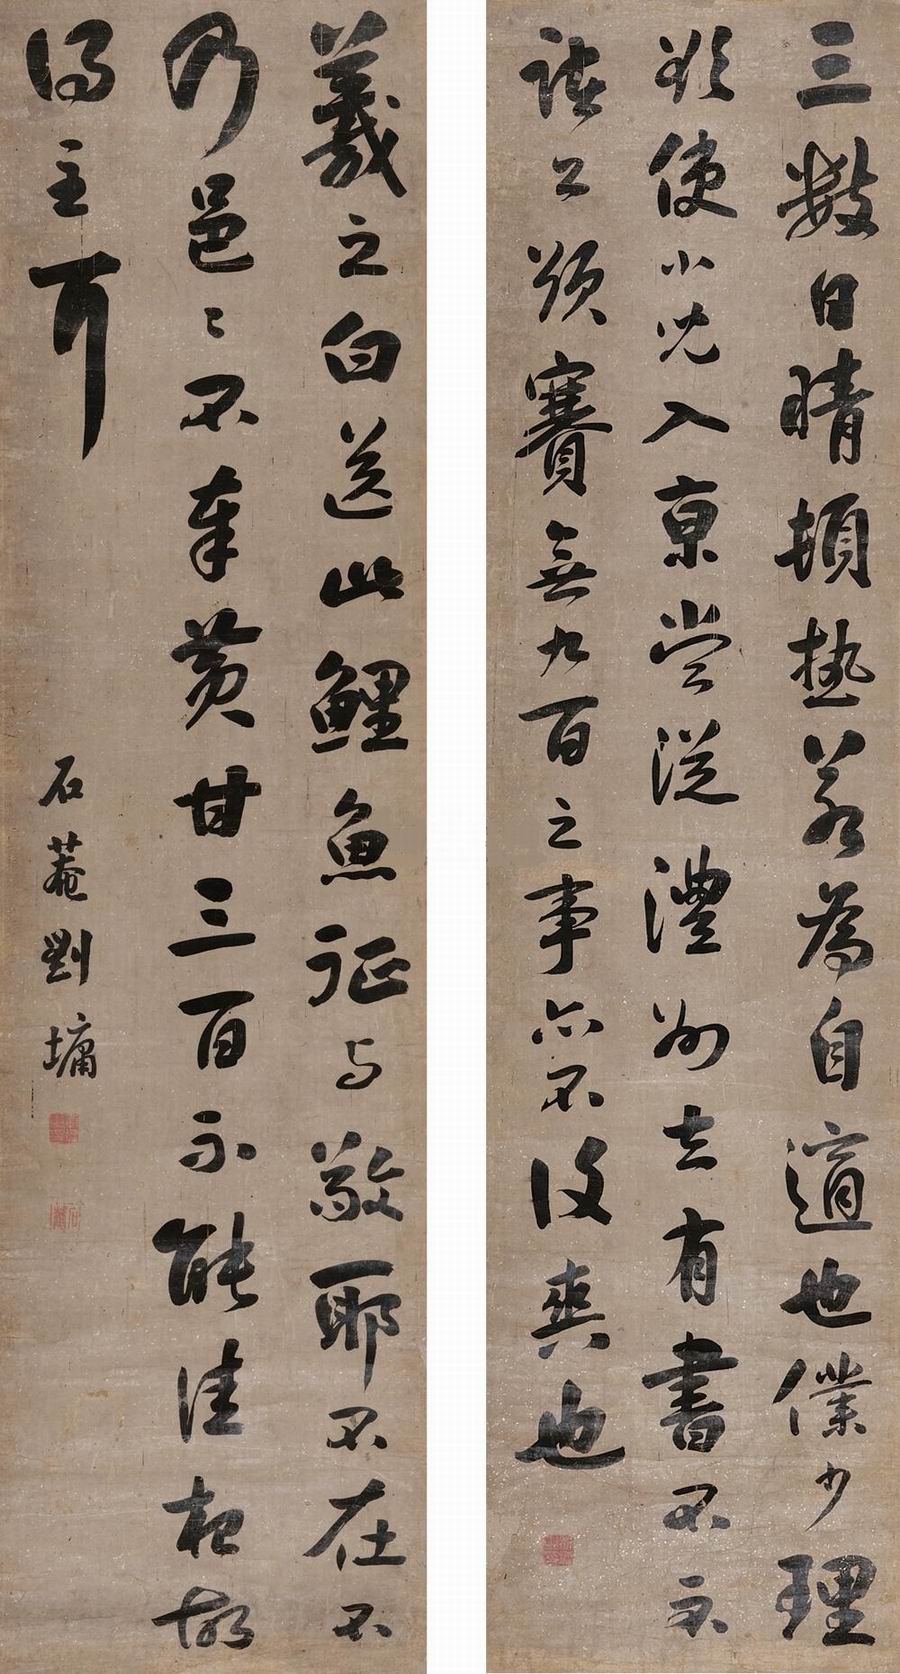 三數日晴頓熱若為自適也僕少理
欲使小兒入京當從澧州去有書不示
諸公頌賽無九百之事亦不復爽也
羲之白送此鯉魚征与敬耶不在不
乃邑〻不奉黄甘三百不能佳想故
得至耳
石菴劉墉